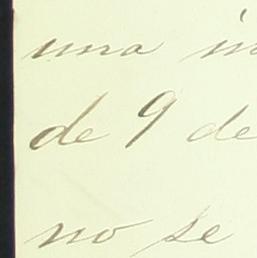 una in
de 9 de
no se